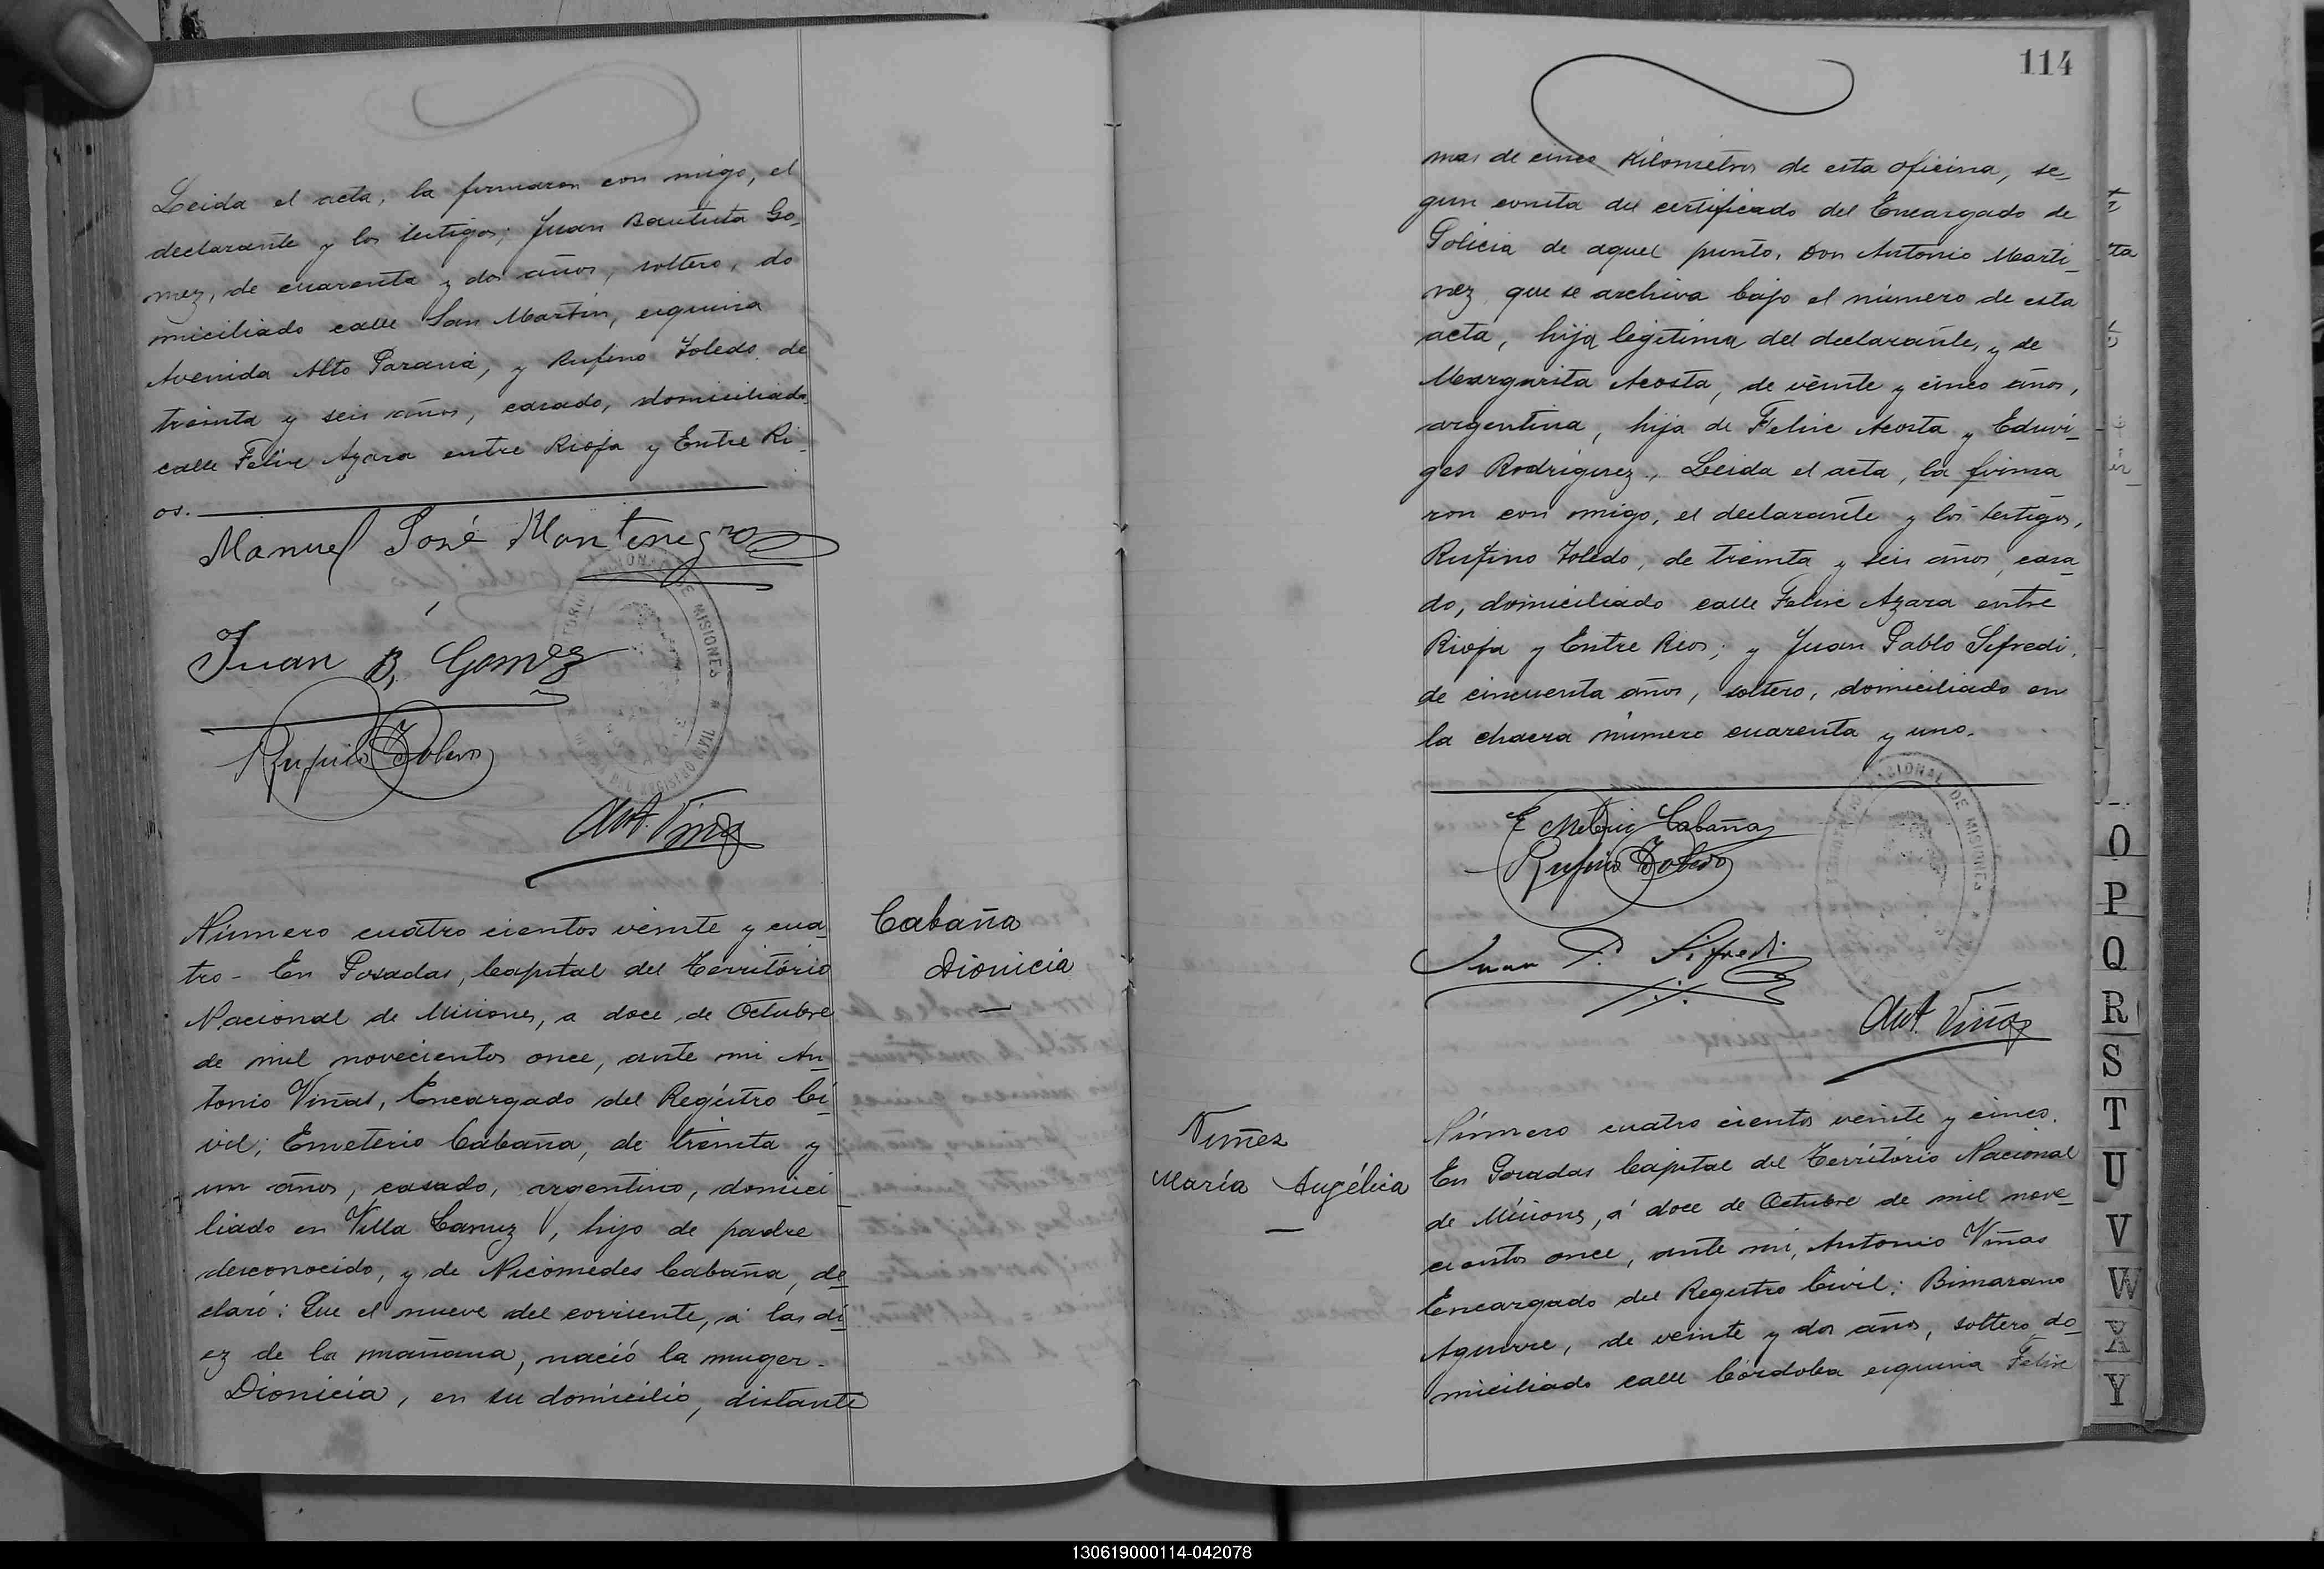 Leida el acta, la firmaron con migo, el
declarante y los testigos; Juan Bautista Go-
mez, de cuarenta y dos años, soltero, do
miciliado calle San Martin, esquina
Avenida Alto Paraná, y Rufino Toledo de
treinta y seis años, casado, domiciliado
calle Felix Azara entre Rioja y Entre Ri-
os.
Manuel José Montenegro
Juan B. Gomez
Rufino Toledo
Ant. Viñas
Número cuatro cientos veinte y cua-
tro - En Posadas, Capital del Território
Nacional de Misiones, a doce de Octubre
de mil novecientos once, ante mi An-
tonio Viñas, Encargado del Registro Ci-
vil; Emeterio Cabaña, de treinta y
un años, casado, argentino, domici
liado en Villa Lanuz, hijo de padre
desconocido, y de Nicomedes Cabaña, de-
claró: Que el nueve del corriente, á las di-
ez de la mañana, nació la muger-
Dionicia, en su domicilio, distante
Cabaña
Dionicia
114
mas de cinco Kilometros de esta oficina, se-
gun consta del certificado del Encargado de
Policia de aquel punto, Don Antonio Marti-
nez que se archiva bajo el número de esta
acta, hija legitima del declarante, y de
Margarita Acosta, de veinte y cinco años,
argentina, hija de Felix Acosta y Eduvi-
ges Rodriguez., Leida el acta, la firma
ron con migo, el declarante y los testigos,
Rufino Toledo, de treinta y seis años, casa-
do, domiciliado calle Felix Azara entre
Rioja y Entre Rios; y Juan Pablo Sifredi,
de cincuenta años, soltero, domiciliado en
la chacra número cuarenta y uno.
Emeterio Cabaña
Rufino Toledo
Juan P. Sifredi
Ant. Viñas
Nuñez
María Angélica
Número cuatro cientos veinte y cinco.
En Posadas Capital del Território Nacional
de Misiones, á doce de Octubre de mil nove-
cientos once, ante mi, Antonio Viñas
Encargado del Registro Civil; Bimarano
Aguirre, de veinte y dos años, soltero do-
miciliado calle Córdoba esquina Felix
O
P
Q
R
S
T
U
V
W
X
Y
130619000114-042078